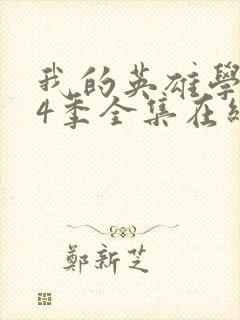 我的英雄學
4季全集在線
鄭新芝